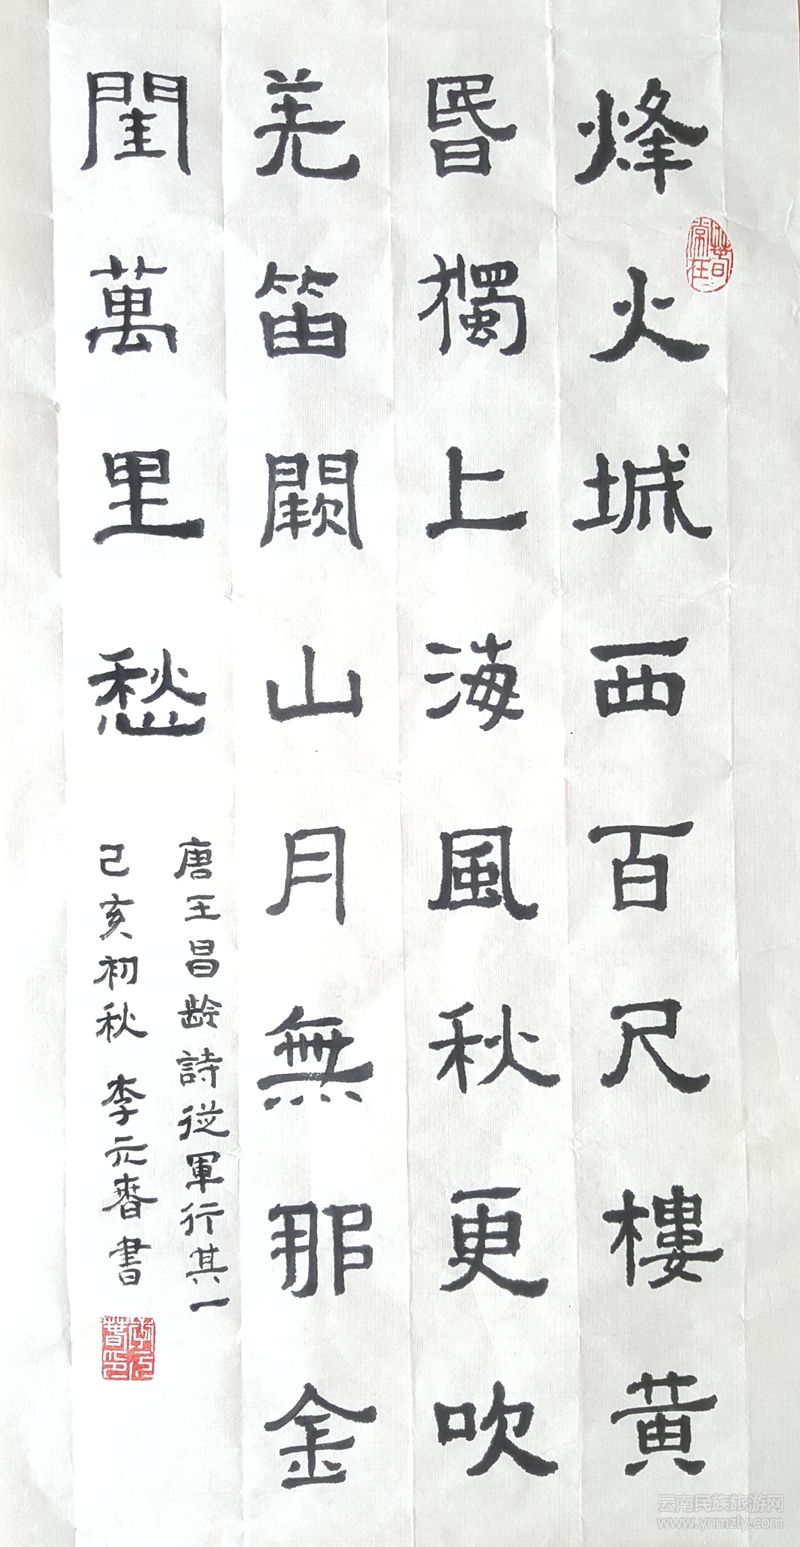 烽火城西百尺樓黄
昬獨上海風秋更吹
羌笛闕山月無那金
閨萬里愁
唐王昌齡詩從軍行其一
己亥初秋 李元春書
春常在
李元春印
云南民族旅游网
www.ynmzly.com